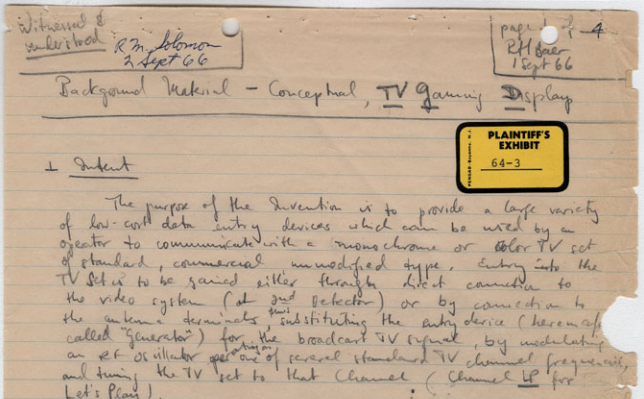 Witnessed &
understood
R M. Solomon
2 Sept 66
page 1 of 4
RHBaer
1 Sept 66
Background Material - Conceptual, TV Gaming Display
PLAINTIFF'S
EXHIBIT
64-3
1 Intent
The purpose of the Invention is to provide a large variety
of low-cost data entry devices which can be used by an
operator to communicate with a monochrome or color TV set
of standard, commercial unmodified type. Entry into the
TV Set is to be gained either through direct connection to
the video system (at 2nd Detector) or by connection to
the antenna terminals, thus substituting the entry device (hereinaf
called "generator") for the broadcast TV signal, by modulating
an RF oscillator operating on one of several standard TV channel frequencies,
and tuning the TV set to that Channel (Channel LP for
Let's Play)